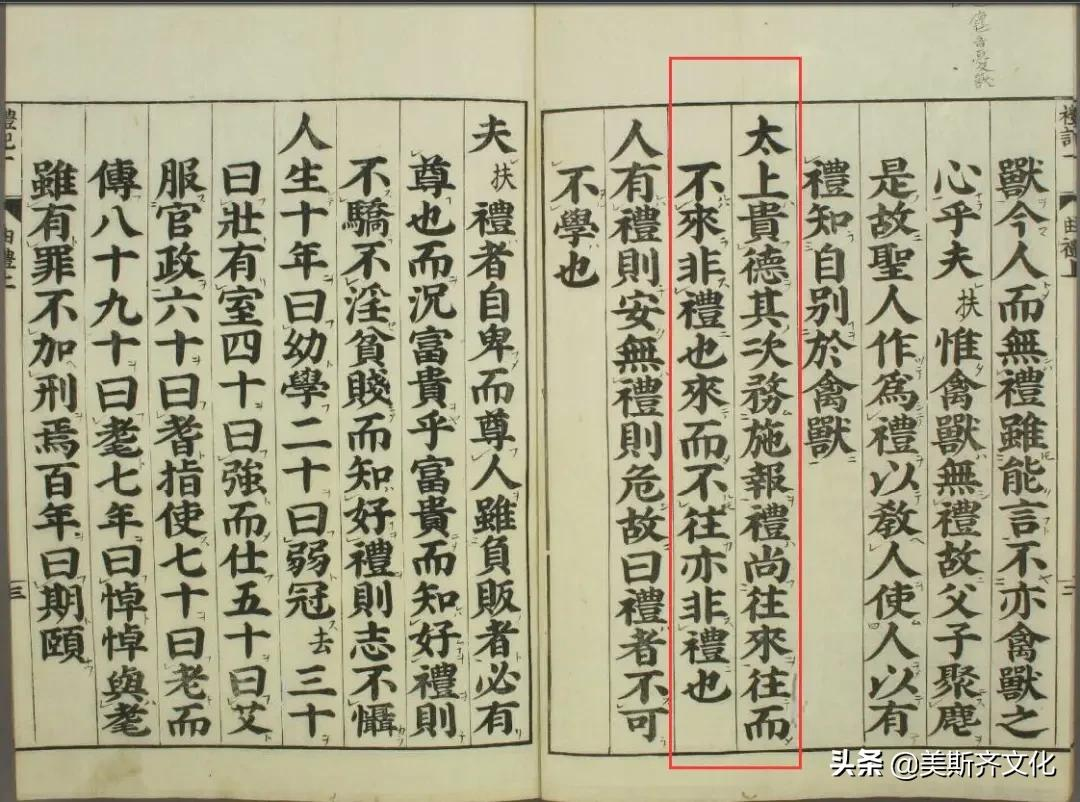 禮記一 曲禮上
獸今人而無禮雖能言不亦禽獸之
心乎夫扶惟禽獸無禮故父子聚麀
是故聖人作爲禮以敎人使人以有
禮知自别於禽獸
太上貴德其次務施報禮尚往來往而
不來非禮也來而不往亦非禮也
人有禮則安無禮則危故曰禮者不可
不學也
夫扶禮者自卑而尊人雖負販者必有
尊也而況富貴乎富貴而知好禮則
不驕不淫貧賤而知好禮則志不懾
人生十年曰幼學二十曰弱冠去三十
曰壯有室四十曰強而仕五十曰艾
服官政六十曰耆指使七十曰老而
傳八十九十曰耄七年曰悼悼與耄
雖有罪不加刑焉百年曰期頤
禮記一 曲禮上 三
头条 @美斯齐文化